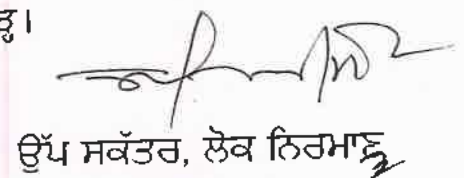 ੜ੍ਹ।
ਉੱਪ ਸਕੱਤਰ, ਲੋਕ ਨਿਰਮਾਣ